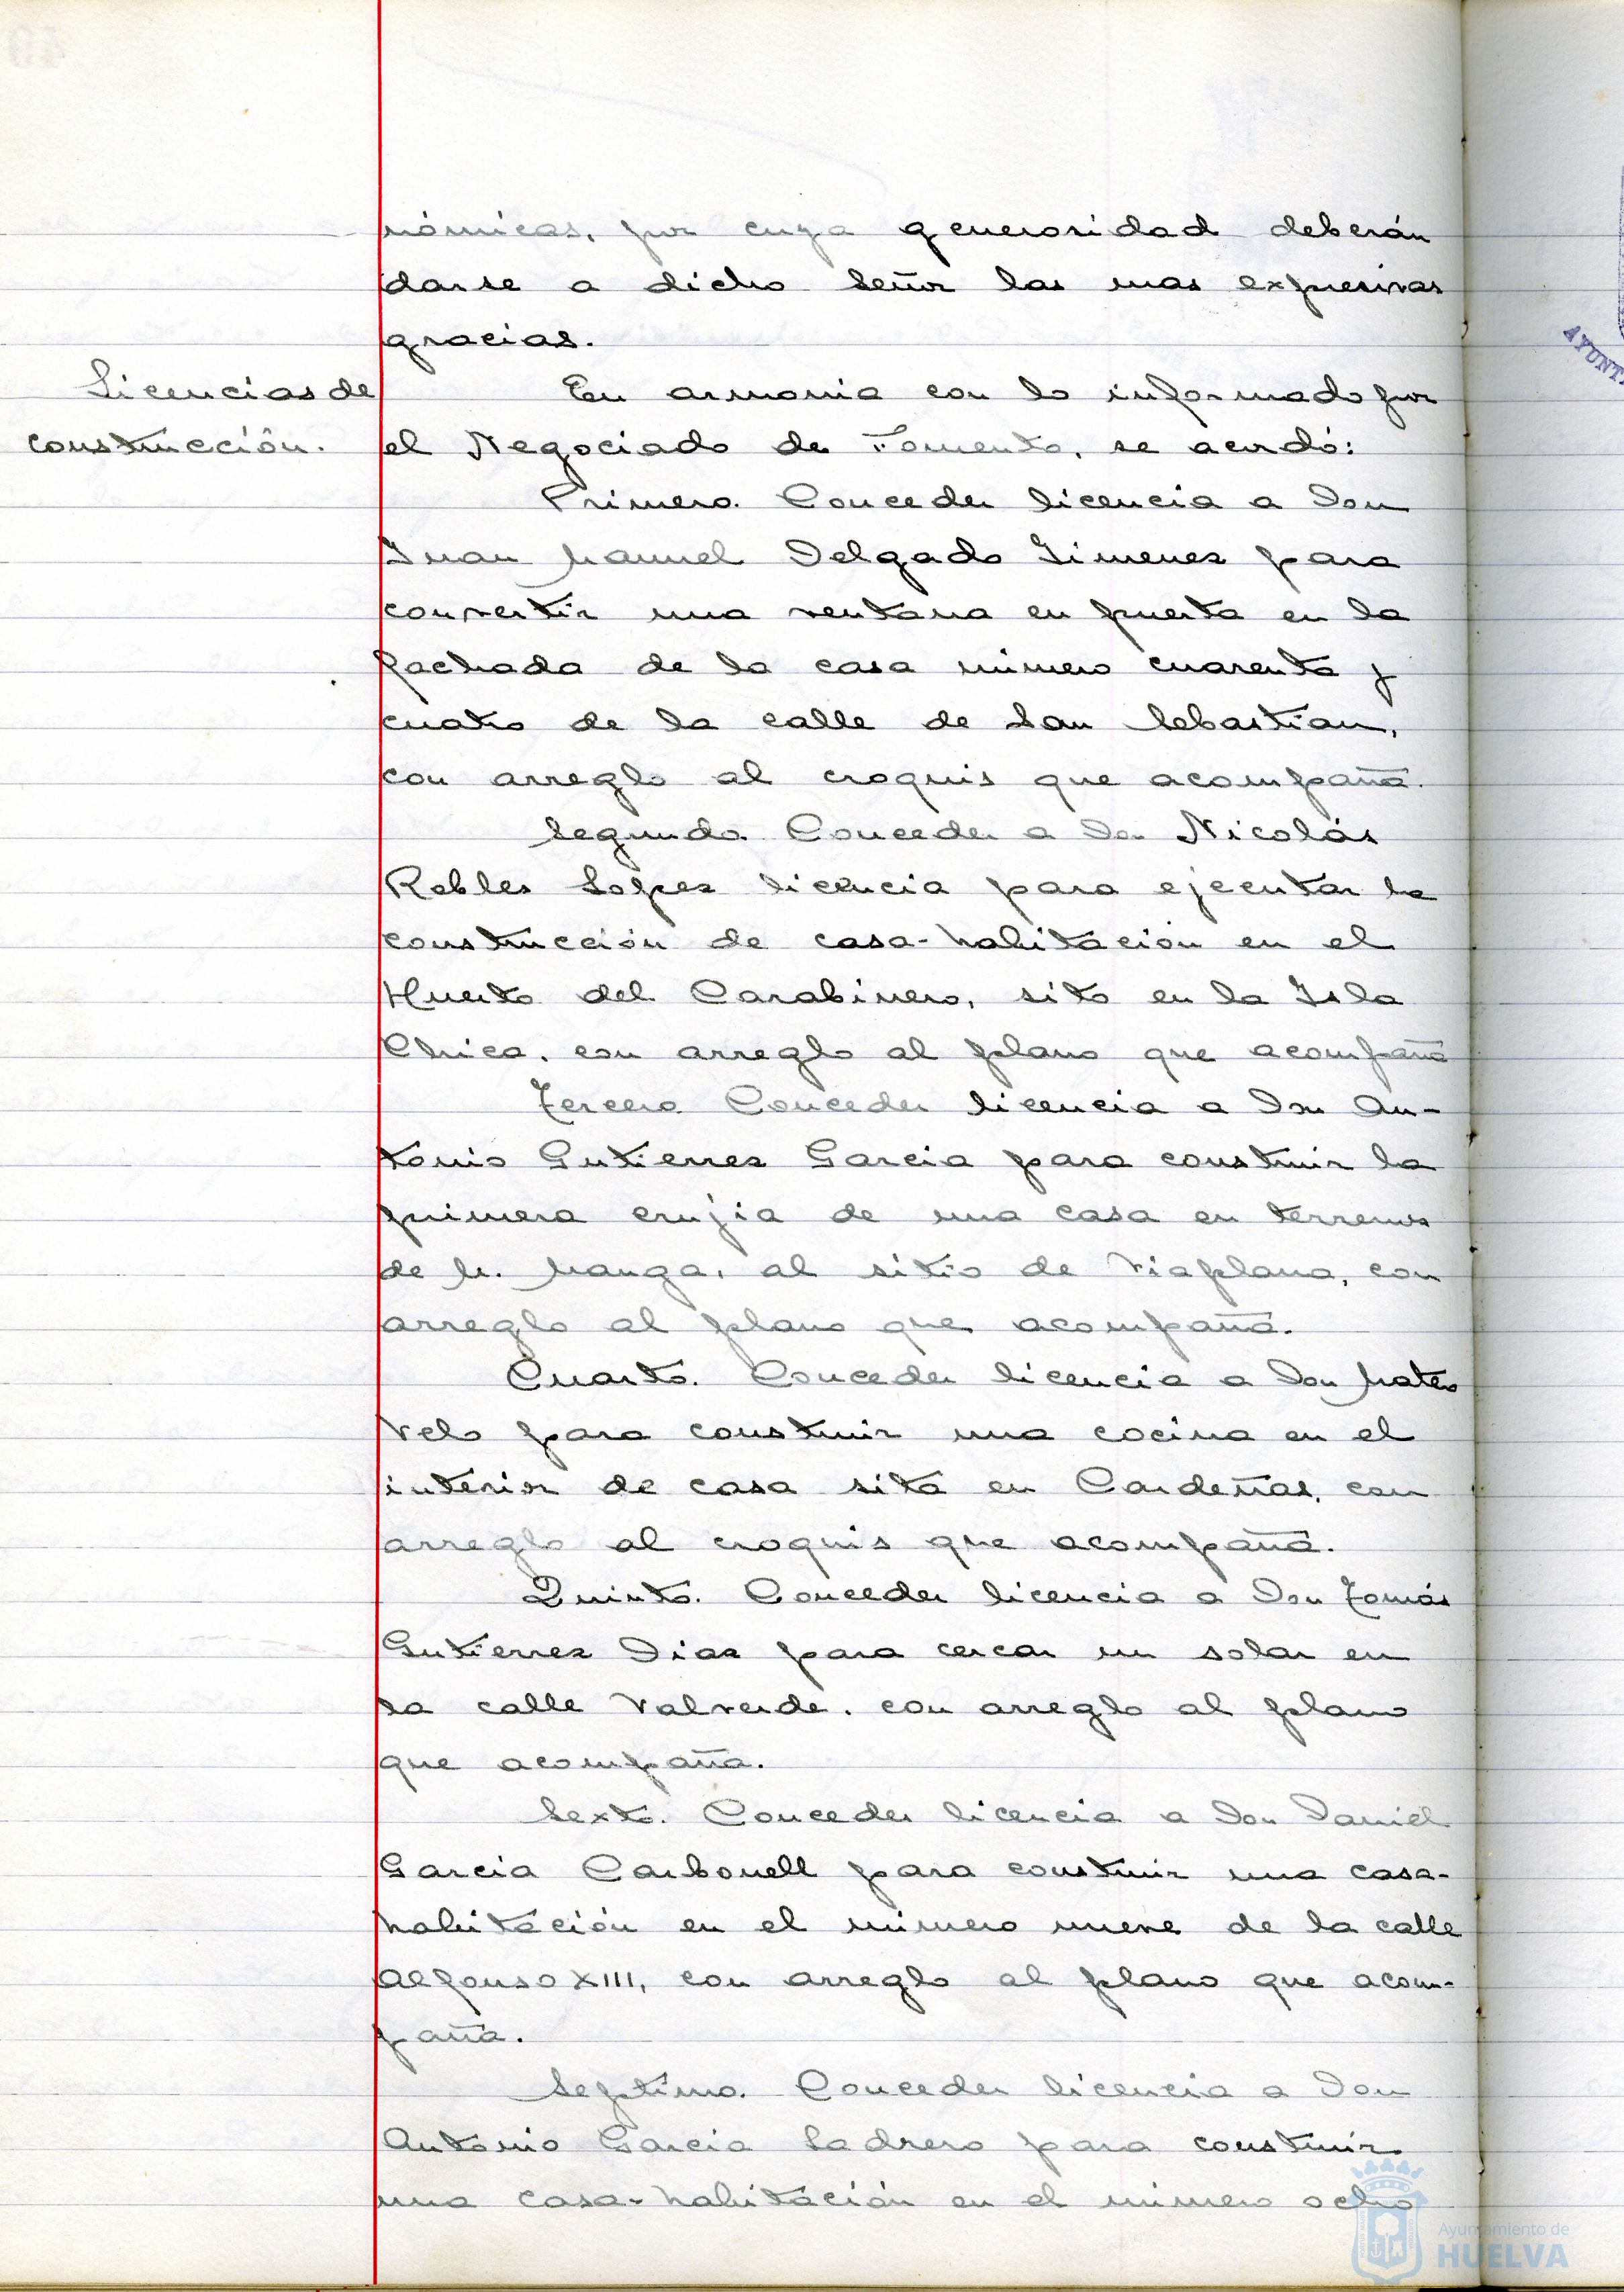 nómicas, por cuya generosidad deberán
darse a dicho Señor las mas expresivas
gracias.
Licencias de
construcción.
En armonia con lo informado por
el Negociado de Fomento, se acordó:
Primero. Conceder licencia a Don
Juan Manuel Delgado Jimenez para
convertir una ventana en puerta en la
fachada de la casa número cuarenta y
cuatro de la calle de San Sebastian,
con arreglo al croquis que acompaña.
Segundo. Conceder a Don Nicolás
Robles Lopez licencia para ejecutar la
construcción de casa-habitación en el
Huerto del Carabinero, sito en la Isla
Chica, con arreglo al plano que acompaña
Tercero. Conceder licencia a Don An-
tonio Gutierrez Garcia para construir la
primera crujia de una casa en terrenos
de M. Manga, al sitio de Viaplana, con
arreglo al plano que acompaña.
Cuarto. Conceder licencia a Don Mateo
Velo para construir una cocina en el
interior de casa sita en Cardeñas, con
arreglo al croquis que acompaña.
Quinto. Conceder licencia a Don Tomás
Gutierrez Diaz para cercar un solar en
la calle Valverde, con arreglo al plano
que acompaña.
Sexto. Conceder licencia a Don Daniel
Garcia Carbonell para construir una casa-
habitación en el número nueve de la calle
Alfonso XIII, con arreglo al plano que acom-
paña.
Septimo. Conceder licencia a Don
Antonio Garcia Ladrero para construir
una casa-habitación en el número ocho
Ayuntamiento de
HUELVA